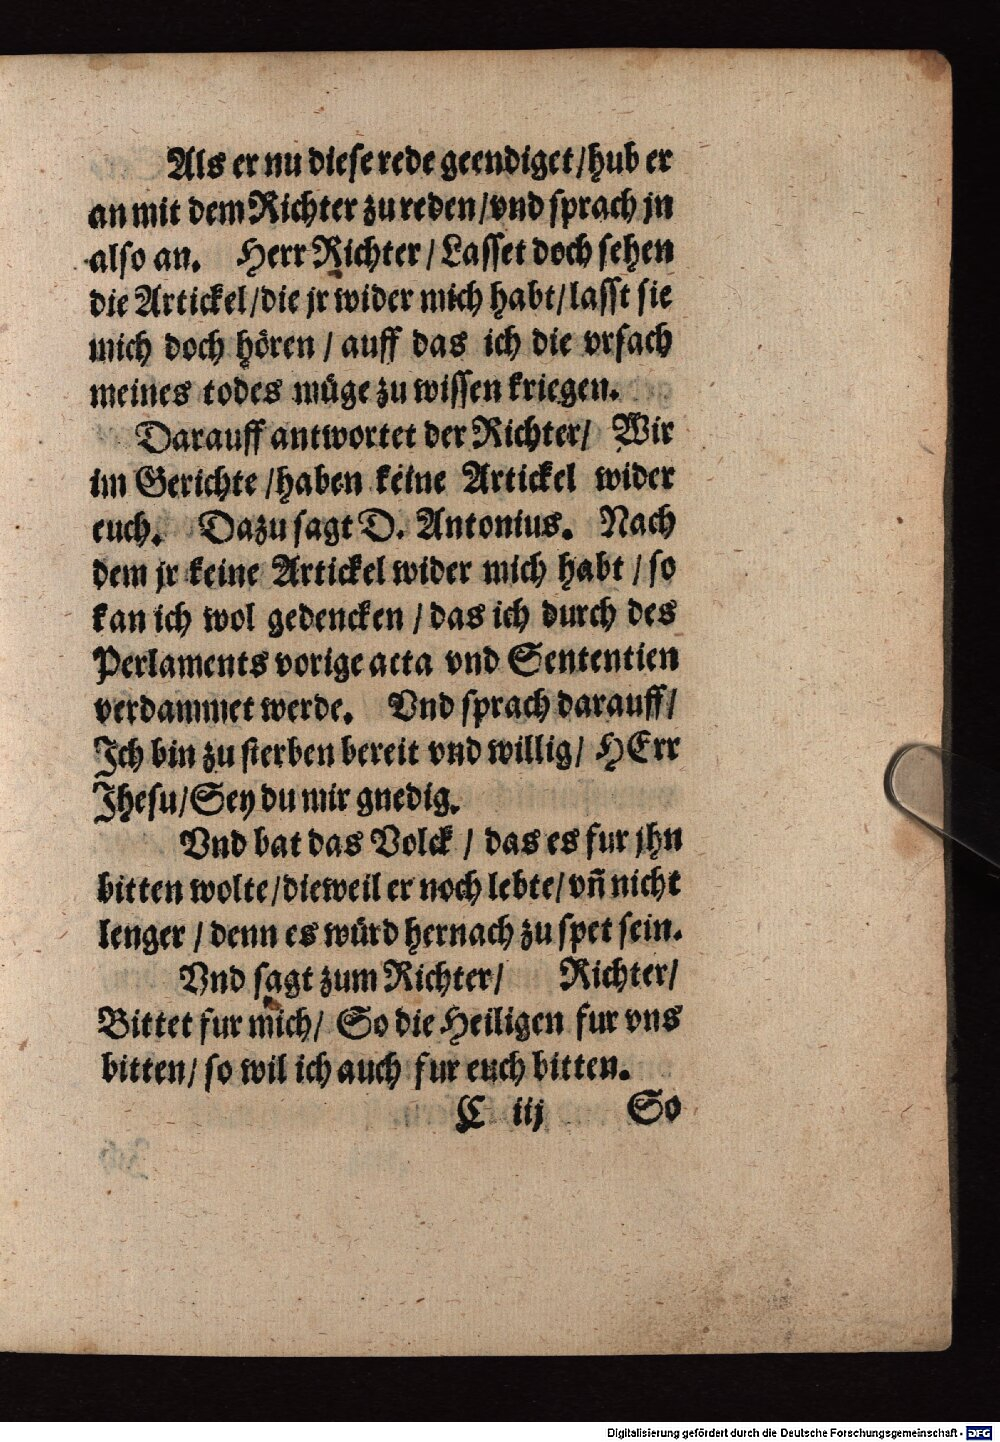 Als er nu diese rede geendiget/hub er
an mit dem Richter zu reden/vnd sprach jn
also an. Herr Richter/Lasset doch sehen
die Artickel/die jr wider mich habt/lasst sie
mich doch hören/auff das ich die vrsach
meines todes müge zu wissen kriegen.
Darauff antwortet der Richter/ Wir
im Gerichte/haben keine Artickel wider
euch. Dazu sagt D. Antonius. Nach
dem jr keine Artickel wider mich habt/so
kan ich wol gedencken/das ich durch des
Perlaments vorige acta vnd Sententien
verdammet werde. Vnd sprach darauff/
Ich bin zu sterben bereit vnd willig/ HErr
Jhesu/Sey du mir gnedig.
Vnd bat das Volck/ das es fur jhn
bitten wolte/dieweil er noch lebte/vñ nicht
lenger/denn es würd hernach zu spet sein.
Vnd sagt zum Richter/ Richter/
Bittet fur mich/ So die Heiligen fur vns
bitten/so wil ich auch fur euch bitten.
C iij So
Digitalisierung gefördert durch die Deutsche Forschungsgemeinschaft - DFG